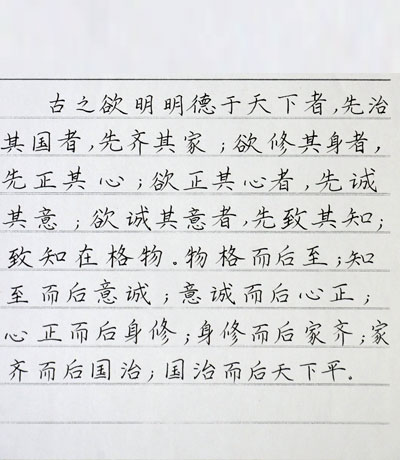 古之欲明明德于天下者,先治
其国者,先齐其家;欲修其身者,
先正其心;欲正其心者,先诚
其意;欲诚其意者,先致其知;
致知在格物.物格而后至;知
至而后意诚;意诚而后心正;
心正而后身修;身修而后家齐;家
齐而后国治;国治而后天下平.